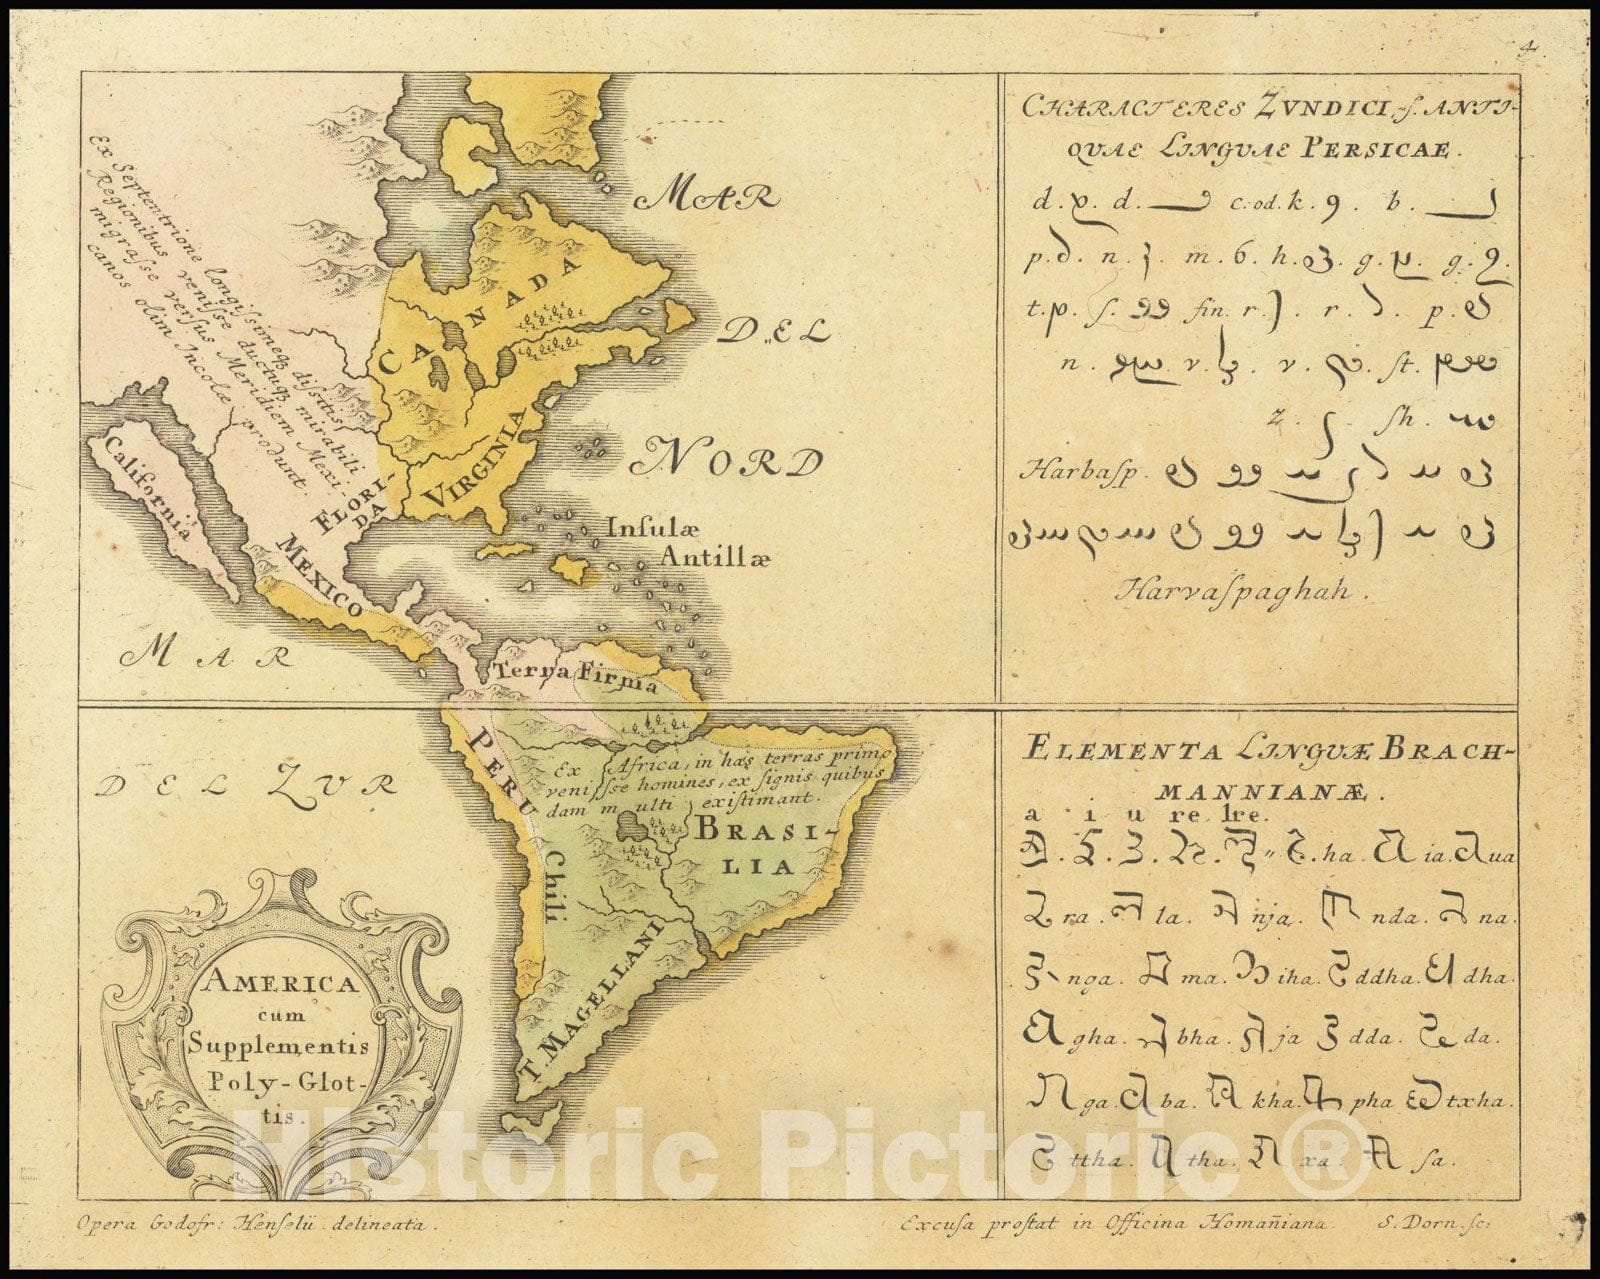 4.
Ex Septentrione longissimeq; dissitis
Regionibus venisse ductuq; mirabili
migrasse versus Meridiem Mexi-
canos olim Incolæ produnt.
MAR
DEL
NORD
CANADA
VIRGINIA
FLORI-
DA
California
MEXICO
Insulæ
Antillæ
MAR
Terra Firma
DEL ZUR
PERU
Ex Africa, in has terras primo
venisse homines, ex signis quibus
dam multi existimant.
BRASI-
LIA
Chili
T. MAGELLANI
AMERICA
cum
Supplementis
Poly-Glot-
tis.
CHARACTERES ZVNDICI, s. ANTI-
QVAE LINGVAE PERSICAE.
d. d. c. od. k. b.
p. n. m. h. g. g.
t. ſ. fin. r. r. p.
n. v. v. ſt.
z. ſh.
Harbaſp.
Harvaſpaghah.
ELEMENTA LINGUÆ BRACH-
MANNIANÆ.
a i u re lre.
ha. ia. ua
ra. la. nja. nda. na.
nga. ma. iha. ddha. dha.
gha. bha. ja dda. da.
ga. ba. kha. pha txha.
ttha. tha. xa. ſa.
Opera Godofr: Henſelii delineata.
Excuſa proſtat in Officina Homañiana. S. Dorn. ſc:
Historic Pictoric ®